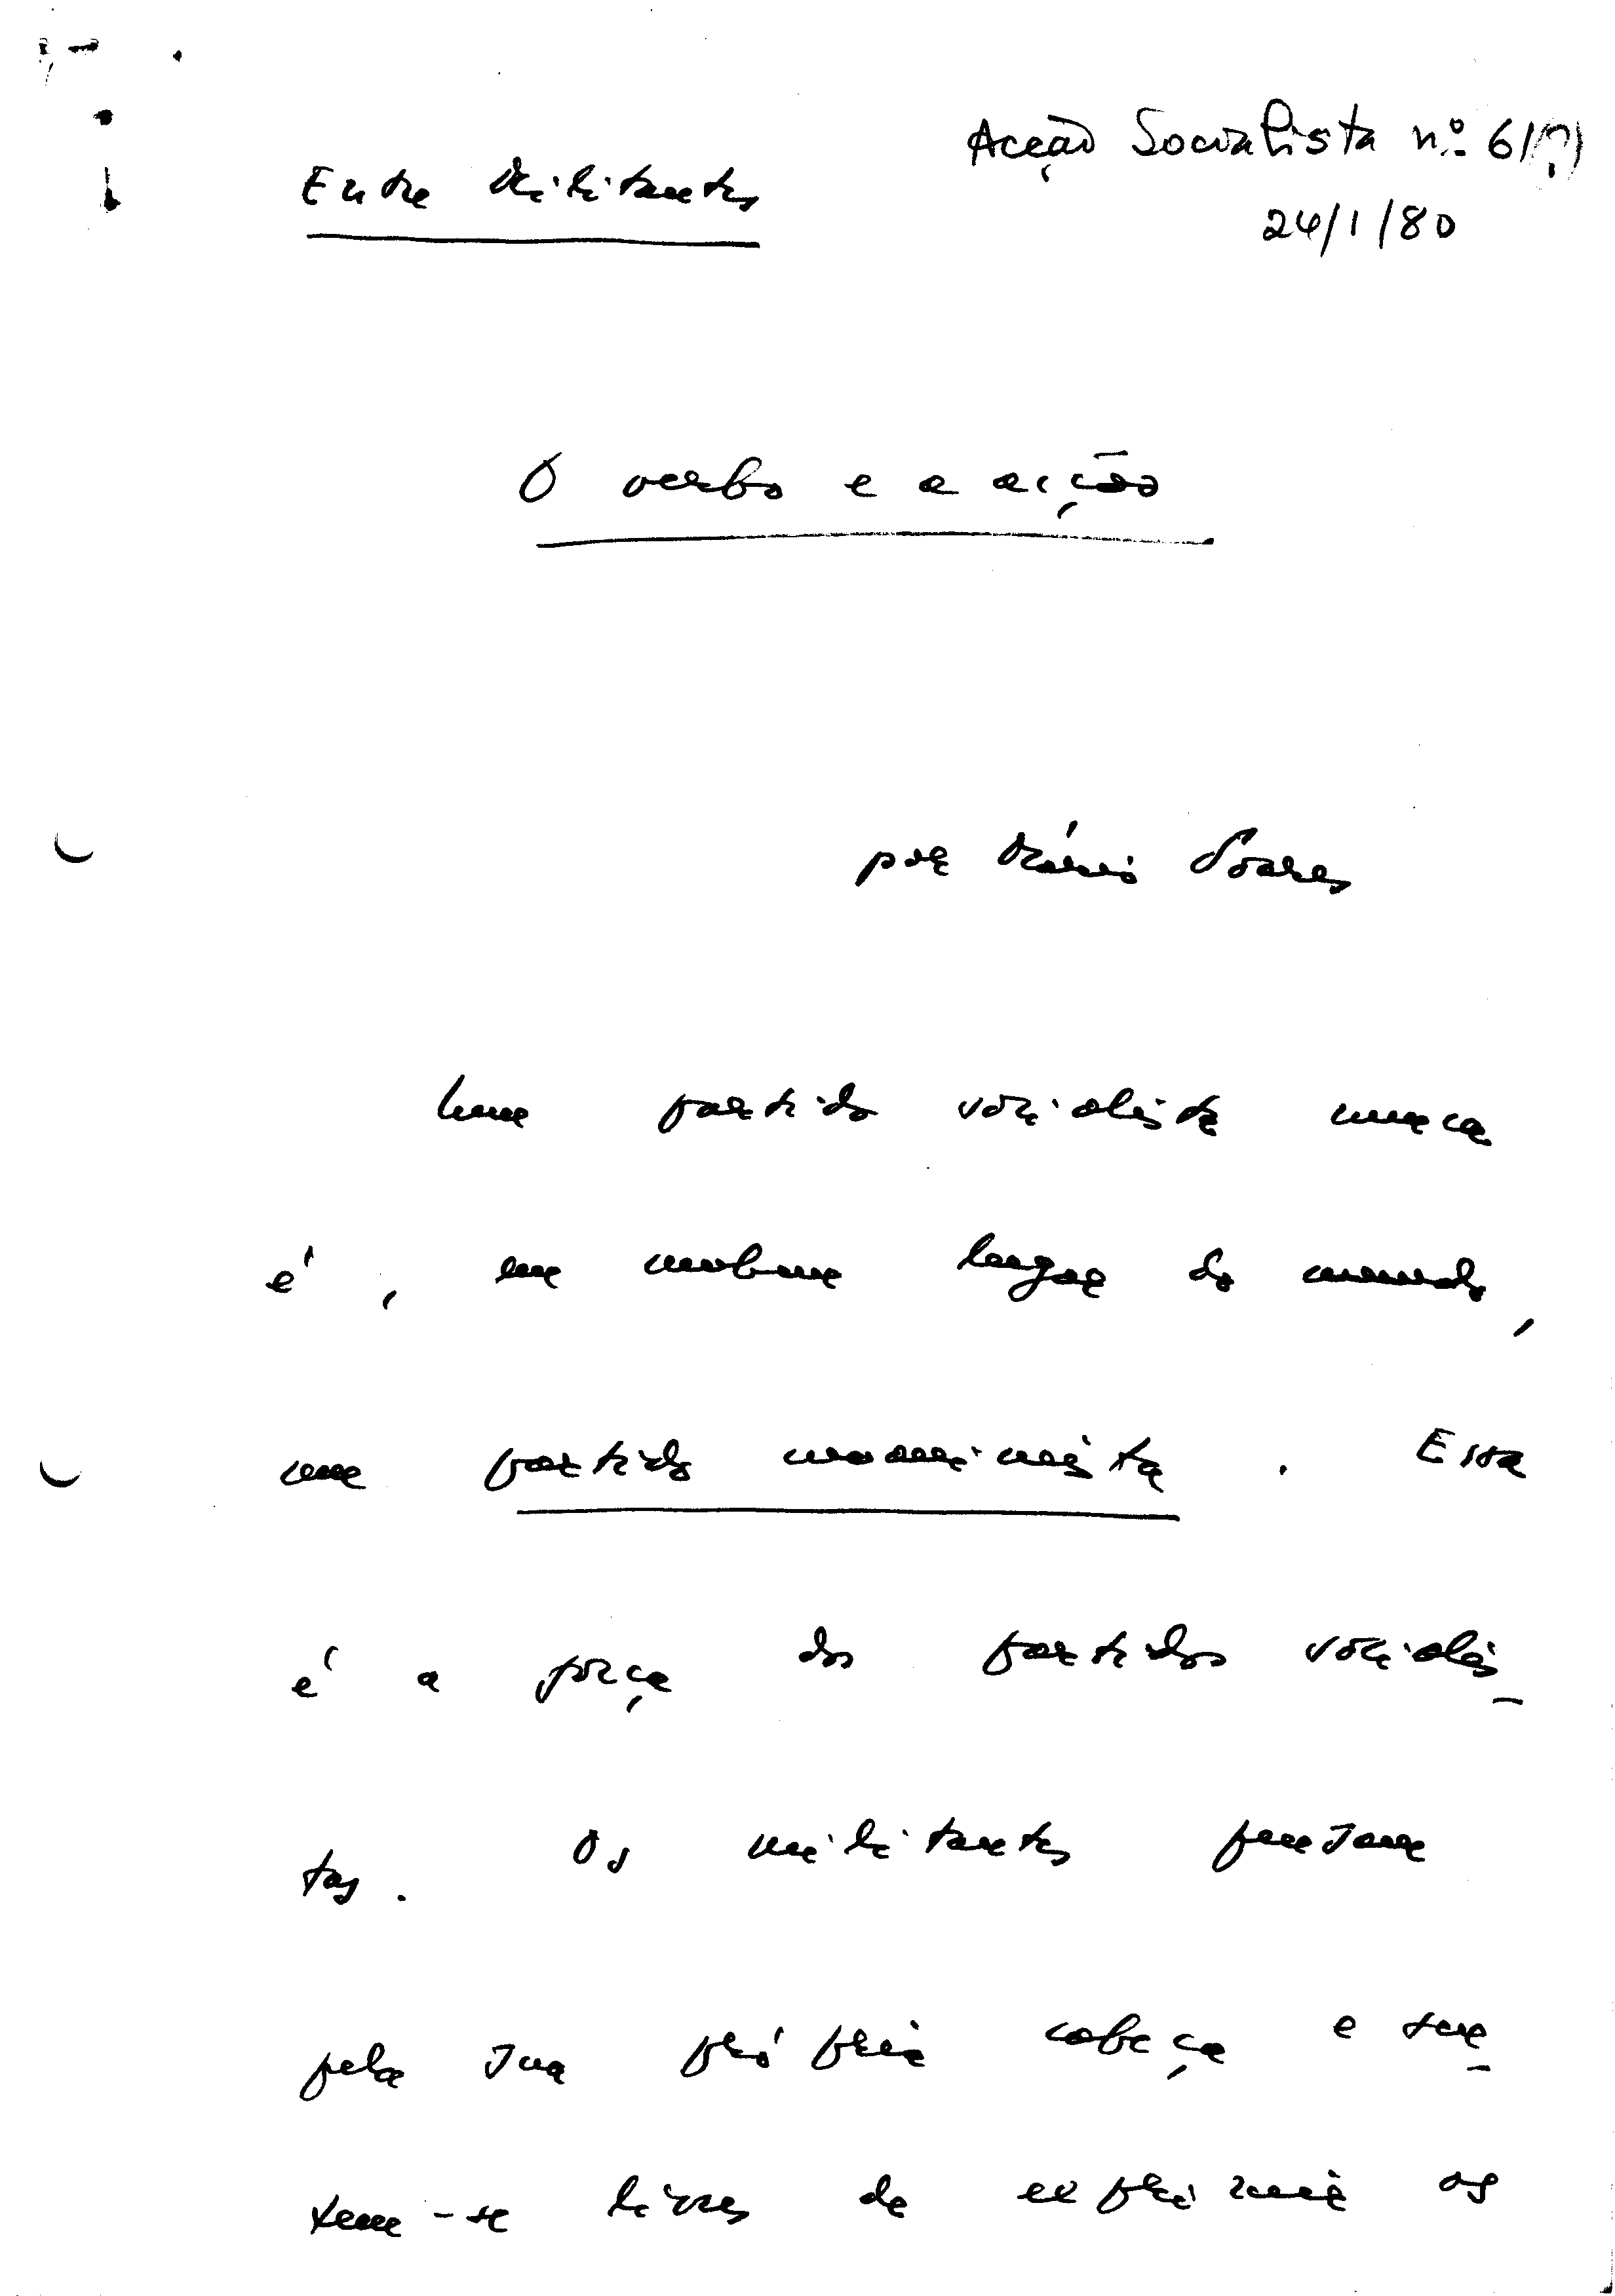 Acção Socialista nº 61(?)
Entre Militantes
24/1/80
O verbo e a acção
por Mário Soares
Um partido socialista nunca
é, em nenhum lugar do mundo,
um partido unanimista. Essa
é a força dos partidos socialis-
tas. Os militantes pensam
pela sua própria cabeça e sen-
tem-se livres de exprimir os